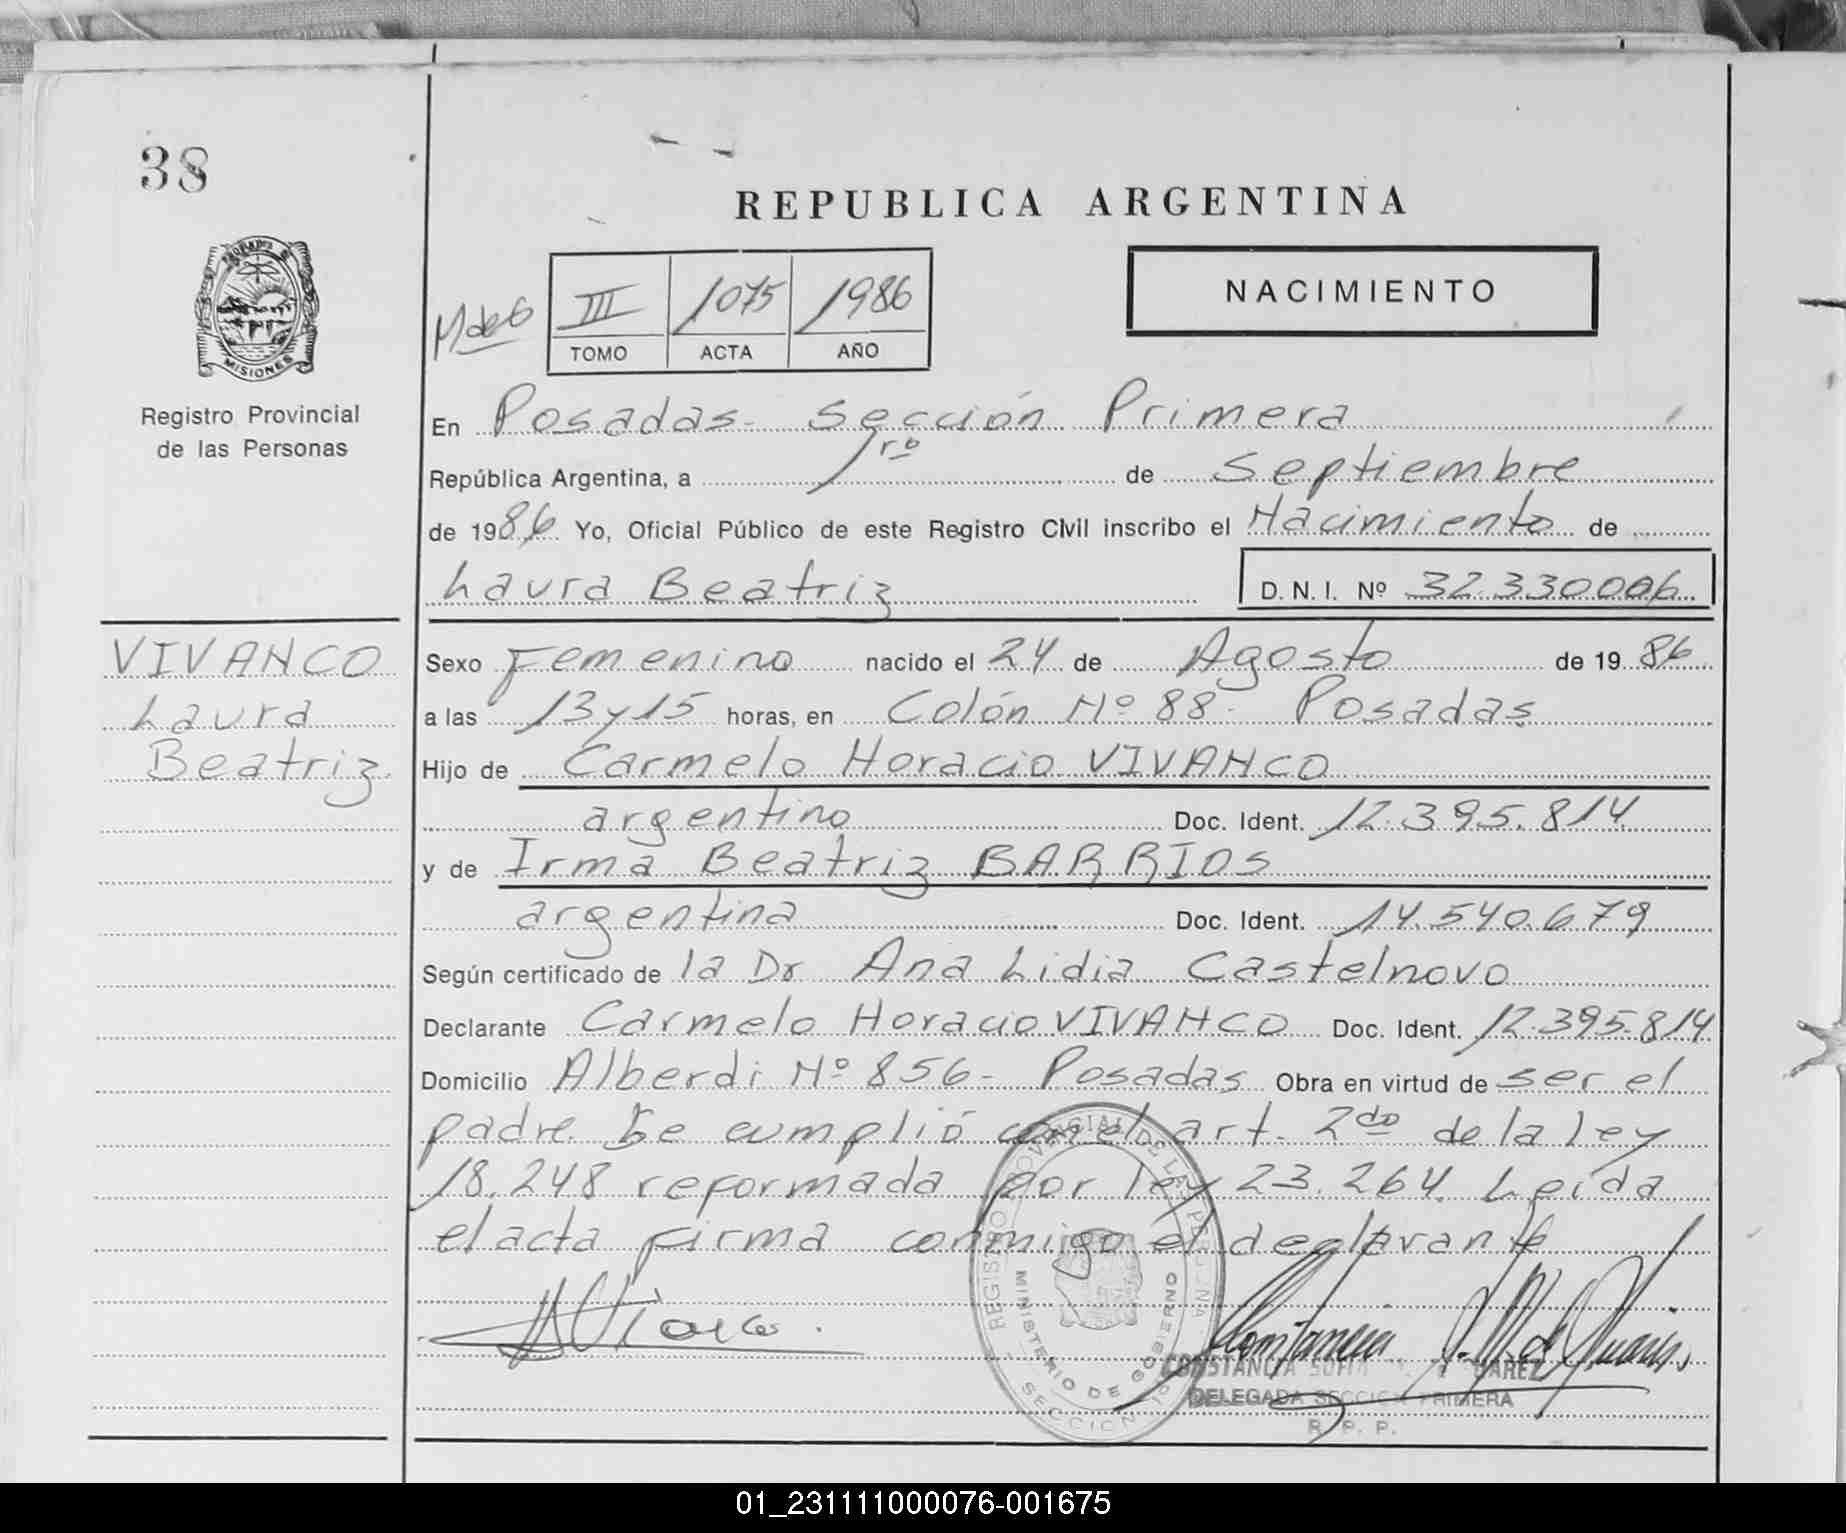 38
REPUBLICA ARGENTINA
NACIMIENTO
III 1075 1986
TOMO ACTA AÑO
MISIONES
Registro Provincial
de las Personas
En Posadas - Sección Primera
República Argentina, a 1ro de Septiembre
de 1986 Yo, Oficial Público de este Registro Civil inscribo el Nacimiento de
Laura Beatriz D. N. I. Nº 32.330006
VIVANCO
Laura
Beatriz
Sexo Femenino nacido el 24 de Agosto de 19 86
a las 13 y 15 horas, en Colón Nº 88 - Posadas
Hijo de Carmelo Horacio VIVANCO
argentino Doc. Ident. 12.395.814
y de Irma Beatriz BARRIOS
argentina Doc. Ident. 14.540.679
Según certificado de la Dr Ana Lidia Castelnovo
Declarante Carmelo Horacio VIVANCO Doc. Ident. 12.395.814
Domicilio Alberdi Nº 856 - Posadas Obra en virtud de ser el
padre. Se cumplió con el art. 2do de la ley
18.248 reformada por ley 23.264. Leída
el acta firma conmigo el declarante
REGISTRO PROVINCIAL DE LAS PERSONAS
MINISTERIO DE GOBIERNO
SECCION 1º
CONSTANCIA SOFIA
DELEGADA SECCION PRIMERA
R. P. P.
01_231111000076-001675